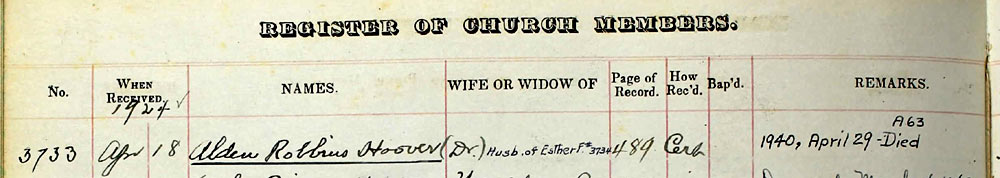 REGISTER OF CHURCH MEMBERS.
No. WHEN RECEIVED. NAMES. WIFE OR WIDOW OF Page of Record. How Rec'd. Bap'd. REMARKS.
1924
A63
3733 Apr 18 Alden Robbins Hoover (Dr.) Husb. of Esther F. #3734 489 Cert 1940, April 29 - Died